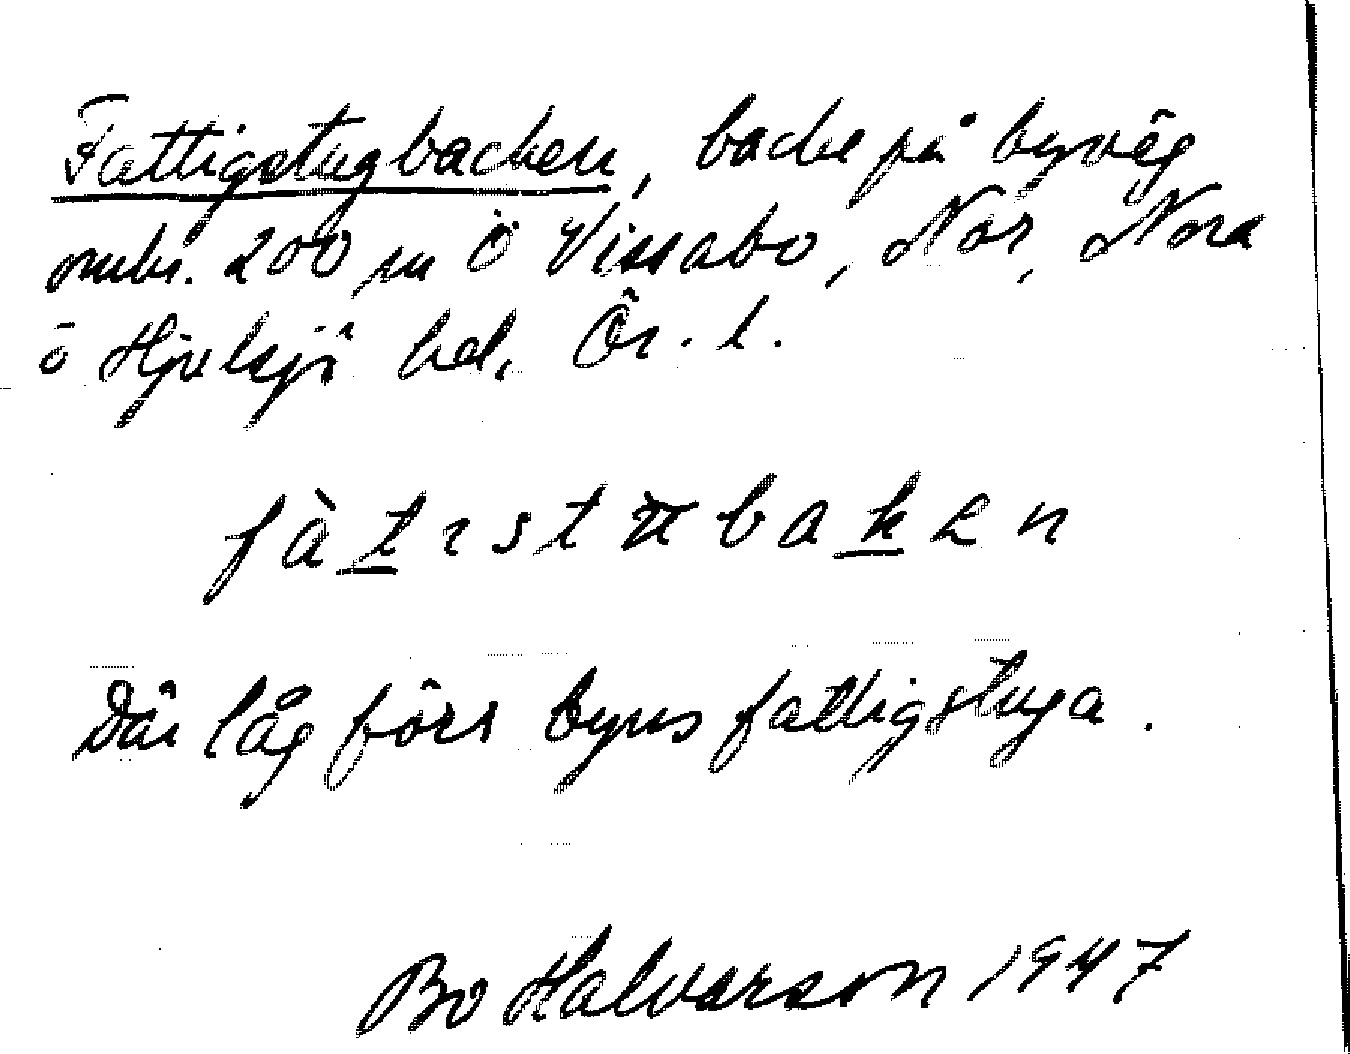 Fattigstugbacken, backe på byväg
omkr. 200 m Ö Vissabo, Nor, Nora
o Hjulsjö bel. Ör. l.
fàtɩstπbakən
Där låg förr byns fattigstuga.
Bo Halvarson 1947